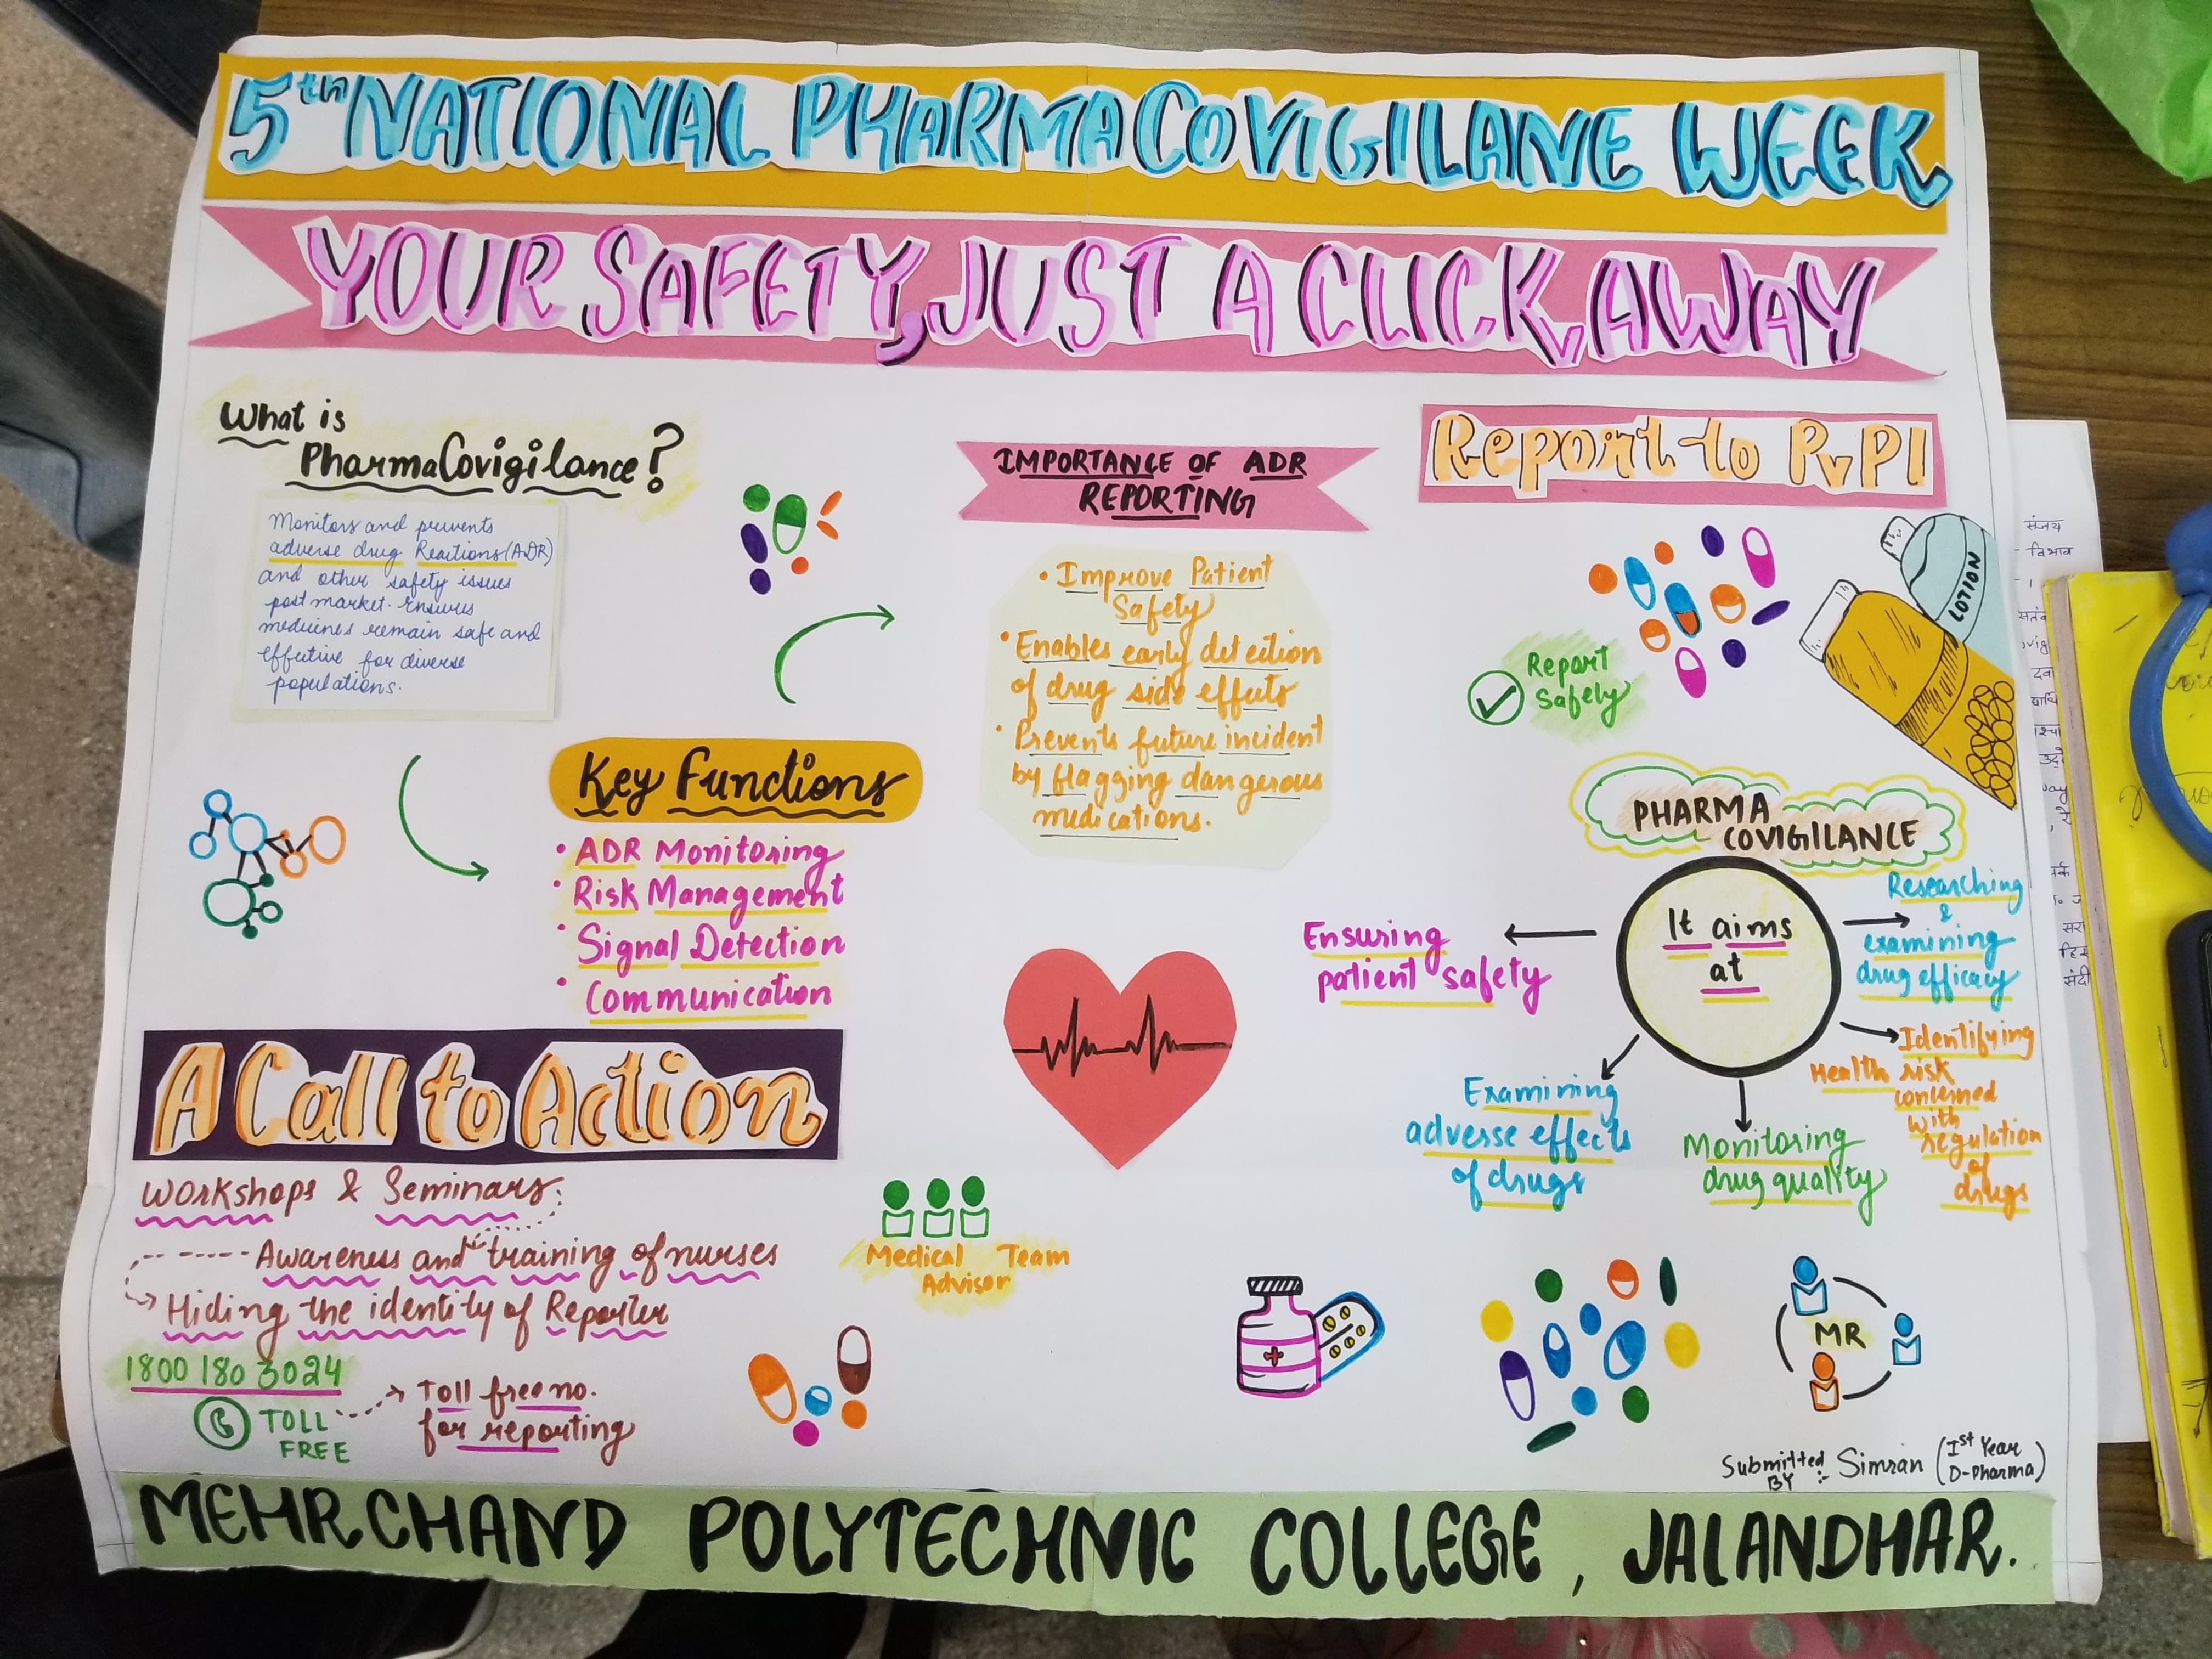 5th NATIONAL PHARMACOVIGILANE WEEK
YOUR SAFETY, JUST A CLICK AWAY
What is
PharmaCovigilance?
Monitors and prevents
adverse drug Reactions (ADR)
and other safety issues
post market. Ensures
medicines remain safe and
effective for diverse
populations.
Key Functions
• ADR Monitoring
• Risk Management
• Signal Detection
• Communication
IMPORTANCE OF ADR
REPORTING
• Improve Patient
Safety
• Enables early detection
of drug side effects
• Prevents future incident
by flagging dangerous
medications.
Report to PvPI
LOTION
Report
Safely
PHARMA
COVIGILANCE
It aims
at
Ensuring
patient safety
Examining
adverse effects
of drugs
Monitoring
drug quality
Identifying
Health risk
concerned
with
regulation
of
drugs
Researching
&
examining
drug efficacy
A Call to Action
Workshops & Seminars
Awareness and training of nurses
Hiding the identity of Reporter
1800 180 3024
TOLL
FREE
Toll free no.
for reporting
Medical Team
Advisor
MR
Submitted
BY :- Simran (Ist Year
D-Pharma)
MEHRCHAND POLYTECHNIC COLLEGE, JALANDHAR.
संजय
विभाव